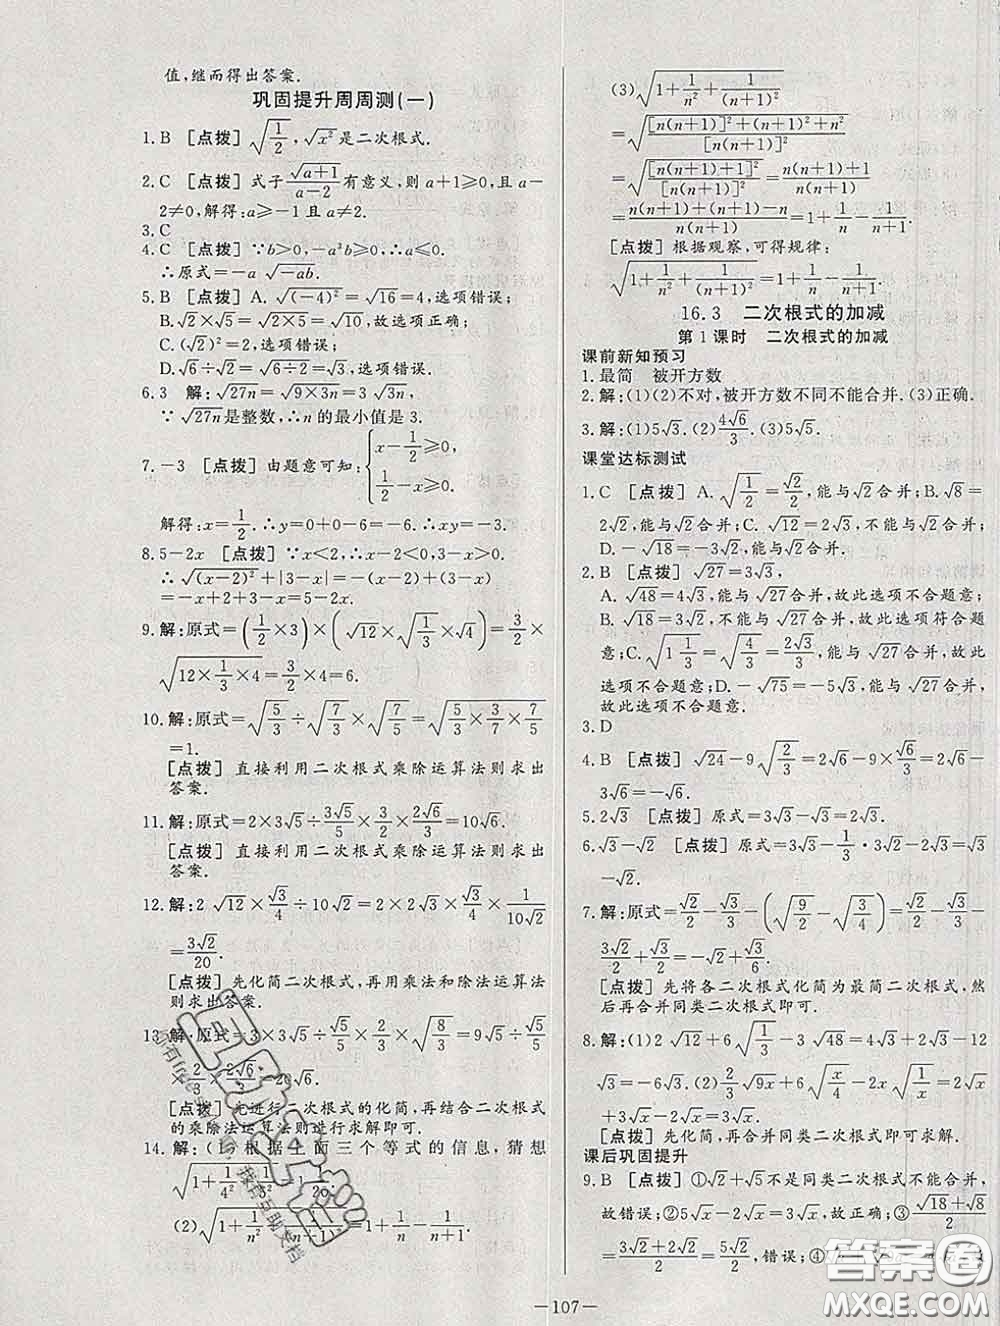 值,继而得出答案.
巩固提升周周测(一)
1.B [点拨] √(1/2), √x²是二次根式.
2.C [点拨] 式子 √(a+1)/(a-2) 有意义,则a+1≥0,且a-
2≠0,解得:a≥-1且a≠2.
3.C
4.C [点拨] ∵b>0,-a³b≥0,∴a≤0.
∴原式=-a √(-ab).
5.B [点拨] A. √(-4)²=√16=4,选项错误;
B.√2×√5=√(2×5)=√10,故选项正确;
C.(√2)²=2,选项错误;
D.√6÷√5=√6/√5=√30/5,选项错误;
6.3 解:√27n=√(9×3n)=3√3n,
∵√27n是整数,∴n的最小值是3.
7.-3 [点拨] 由题意可知:{x-1/2≥0, 1/2-x≥0,
解得:x=1/2.∴y=0+0-6=-6.∴xy=-3.
8.5-2x [点拨] ∵x<2,∴x-2<0,3-x>0.
∴√(x-2)²+|3-x|=|x-2|+(3-x)
=-x+2+3-x=5-2x.
9.解:原式=(1/2×3)×(√12×√(1/3)×√4)=3/2×
√(12×1/3×4)=3/2×4=6.
10.解:原式=√(5/3)÷√(7/3)×√(7/5)=√(5/3×3/7×7/5)
=1.
[点拨] 直接利用二次根式乘除运算法则求出
答案.
11.解:原式=2×3√5÷3√5/5×3/2×2√6/3=10√6.
[点拨] 直接利用二次根式乘除运算法则求出
答案.
12.解:2 √12×√3/4÷10√2=2×2√3×√3/4×1/(10√2)
=3√2/20.
[点拨] 先化简二次根式,再用乘法和除法运算法
则求出答案.
13.解:原式=3×3√5÷√5/5×2/3×√(8/3)=9√5÷√5/5
×2/3×2√6/3=20√6.
[点拨] 先进行二次根式的化简,再结合二次根式
的乘除法运算法则进行求解即可.
14.解:(1)根据上面三个等式的信息,猜想
√(1+1/4²+1/5²)=1 1/20.
(2)√(1+1/n²+1/(n+1)²)=1+1/n-1/(n+1).
(3)√(1+1/n²+1/(n+1)²)
=√([n(n+1)]²+(n+1)²+n²)/[n(n+1)]²)
=√([n(n+1)+1]²/[n(n+1)]²)=(n(n+1)+1)/(n(n+1))
=(n(n+1)+(n+1)-n)/(n(n+1))=1+1/n-1/(n+1).
[点拨] 根据观察,可得规律:
√(1+1/n²+1/(n+1)²)=1+1/n-1/(n+1).
16.3 二次根式的加减
第1课时 二次根式的加减
课前新知预习
1.最简 被开方数
2.解:(1)(2)不对,被开方数不同不能合并.(3)正确.
3.解:(1)5√3. (2)4√6/3. (3)5√5.
课堂达标测试
1.C [点拨] A.√(1/2)=√2/2,能与√2合并;B.√8=
2√2,能与√2合并;C.√12=2√3,不能与√2合并;
D.-√18=-3√2,能与√2合并.
2.B [点拨] √27=3√3,
A.√48=4√3,能与√27合并,故此选项不合题意;
B.√6不能与√27合并,故此选项符合题
意;C.√(1 1/3)=√(4/3)=2√3/3,能与√27合并,故此
选项不合题意;D.-√75=-5√3,能与√27合并,
故此选项不合题意.
3.D
4.B [点拨] √24-9√(2/3)=2√6-9×√6/3=2√6-
3√6=-√6.
5.2√3 [点拨] 原式=3√3-√3=2√3.
6.√3-√2 [点拨] 原式=3√3-1/3·3√2-2√3=√3
-√2.
7.解:原式=√2/2-√3/3-(√(9/2)-√(3/4))=√2/2-√3/3-
3√2/2+√3/2=-√2+√3/6.
[点拨] 先将各二次根式化简为最简二次根式,然
后再合并同类二次根式即可.
8.解:(1)2 √12+6√(1/3)-3 √48=4√3+2√3-12
√3=-6√3. (2)2/3 √9x+6√(x/4)-2x√(1/x)=2√x
+3√x-2√x=3√x.
[点拨] 先化简,再合并同类二次根式即可求解.
课后巩固提升
9.B [点拨] ①√2+√5不是同类二次根式不能合并,
故错误;②5√x-2√x=3√x,正确;③(√18+√8)/2
=(3√2+2√2)/2=5√2/2,错误;④
—107—
答案圈
MXQE.COM